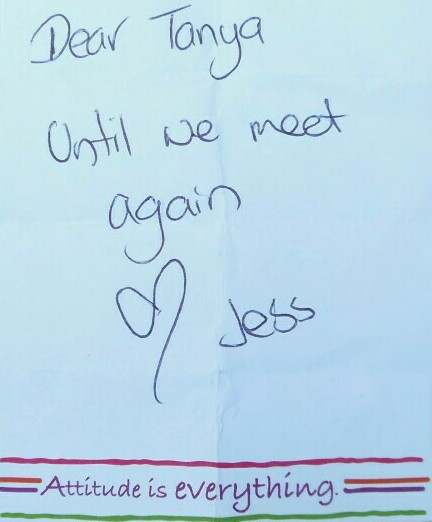 Dear Tanya
Until we meet
again
Jess
Attitude is everything.